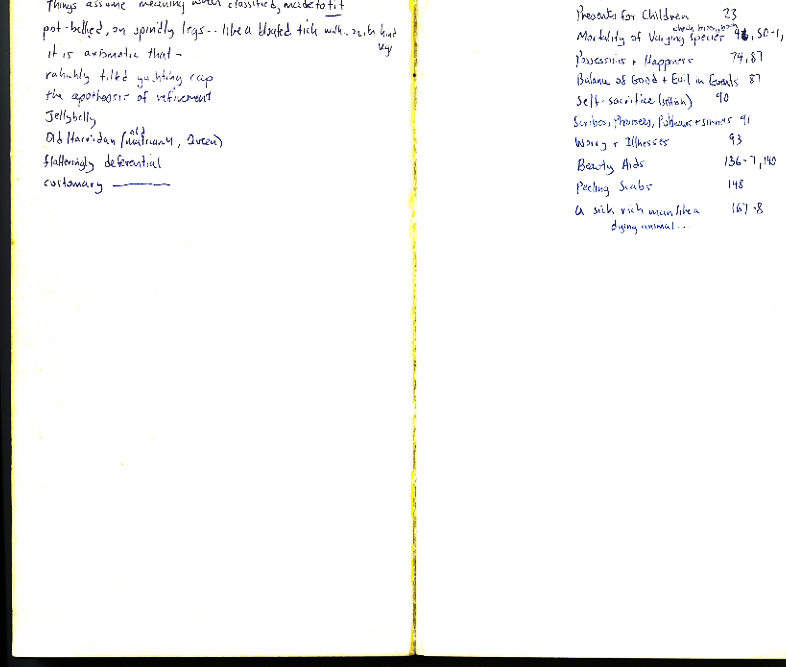 Things assume meaning when classified, made to fit
pot-bellied, on spindly legs.. like a bloated tick walk.. on its hind
legs
it is axiomatic that -
rakishly tilted yachting cap
the apotheosis of refinement
Jellybelly
old
Old Harridan (matriarch, Queen)
flatteringly deferential
customary
Presents for Children 23
check biography
Mortality of Varying Species 46, 50-1,
Possessions + Happiness 74, 87
Balance of Good + Evil in Events 87
Self-sacrifice (selfish) 90
Scribes, Pharisees, Publicans + sinners 91
Worry + Illnesses 93
Beauty Aids 136-7, 140
Peeling Scabs 148
A sick rich man like a 167-8
dying animal...